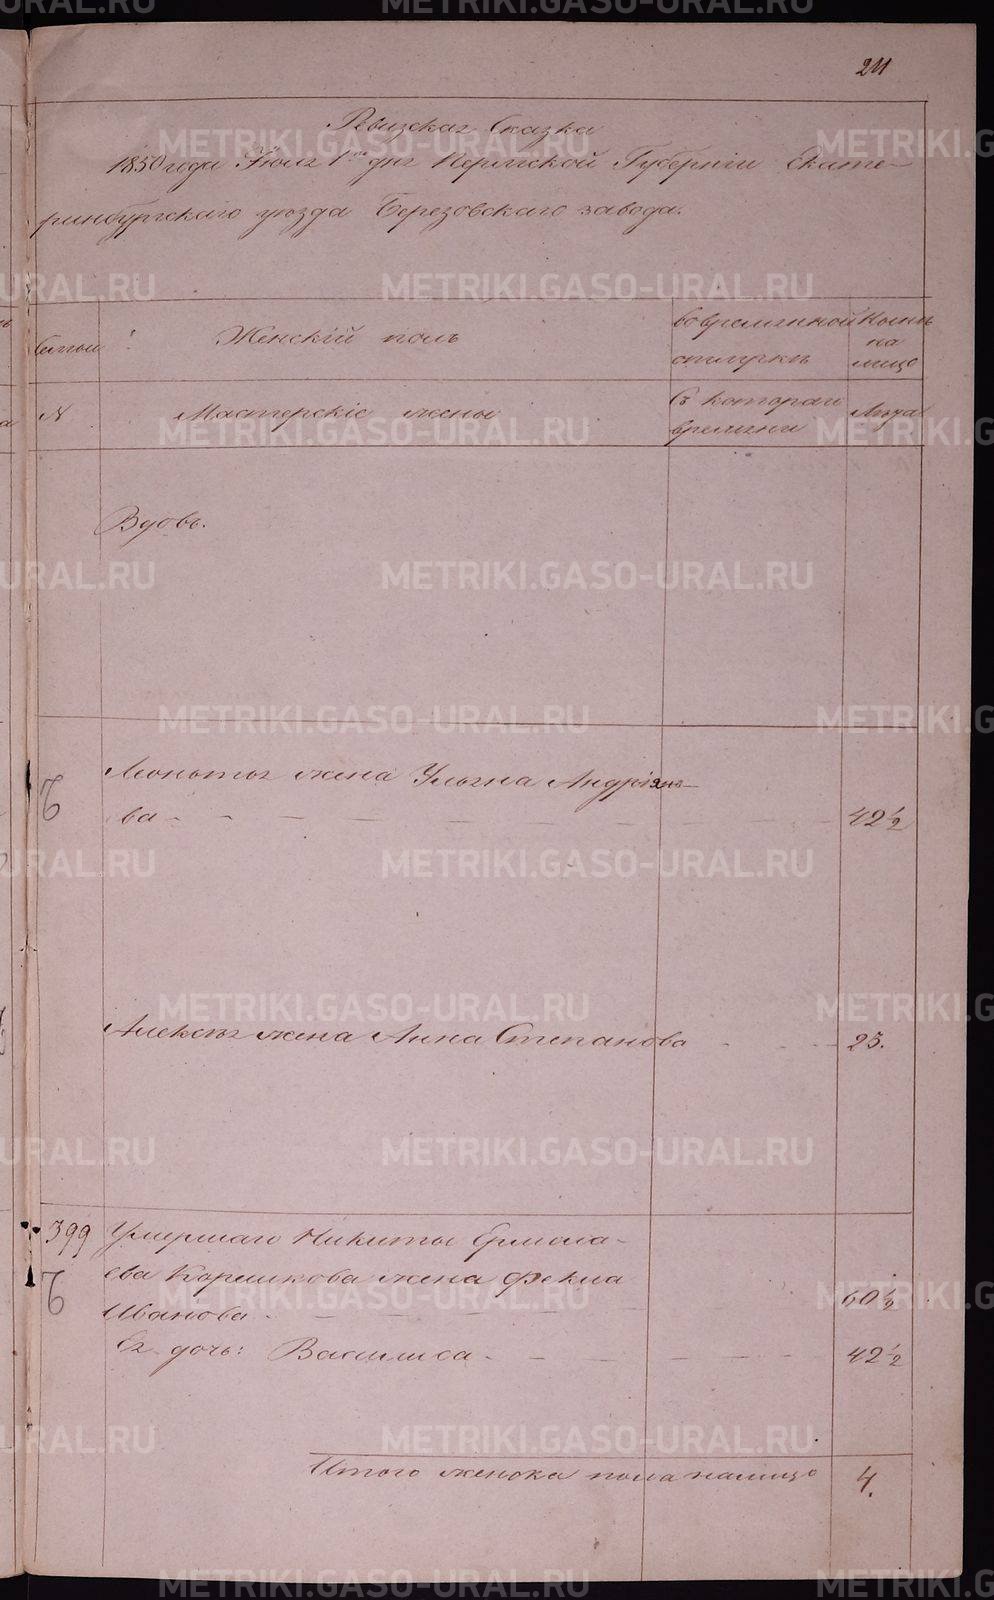 211
Ревизская Сказка
1850 года Июля 1го дня Пермской Губерніи Екате-
ринбургскаго уѣзда Березовскаго завода.
Семьи
Женскій полъ
Во временной
отлучкѣ
Нынѣ
на
лицо
№
Мастерскіе жены
Съ котораго
времени
Лѣта
Вдовъ.
жена Ульяна Андріяно-
ва
42 1/2
Алексѣя жена Анна Степанова
25.
399
Умершаго Никиты Ермола-
ева Кормикова жена Фекла
Иванова
60 1/2
Ея дочь: Василиса
42 1/2
Итого женска пола на лицо
4.
METRIKI.GASO-URAL.RU